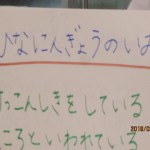 ひなにんぎょうのいみ
っこんしきをしている
ころといわれている
2018/0